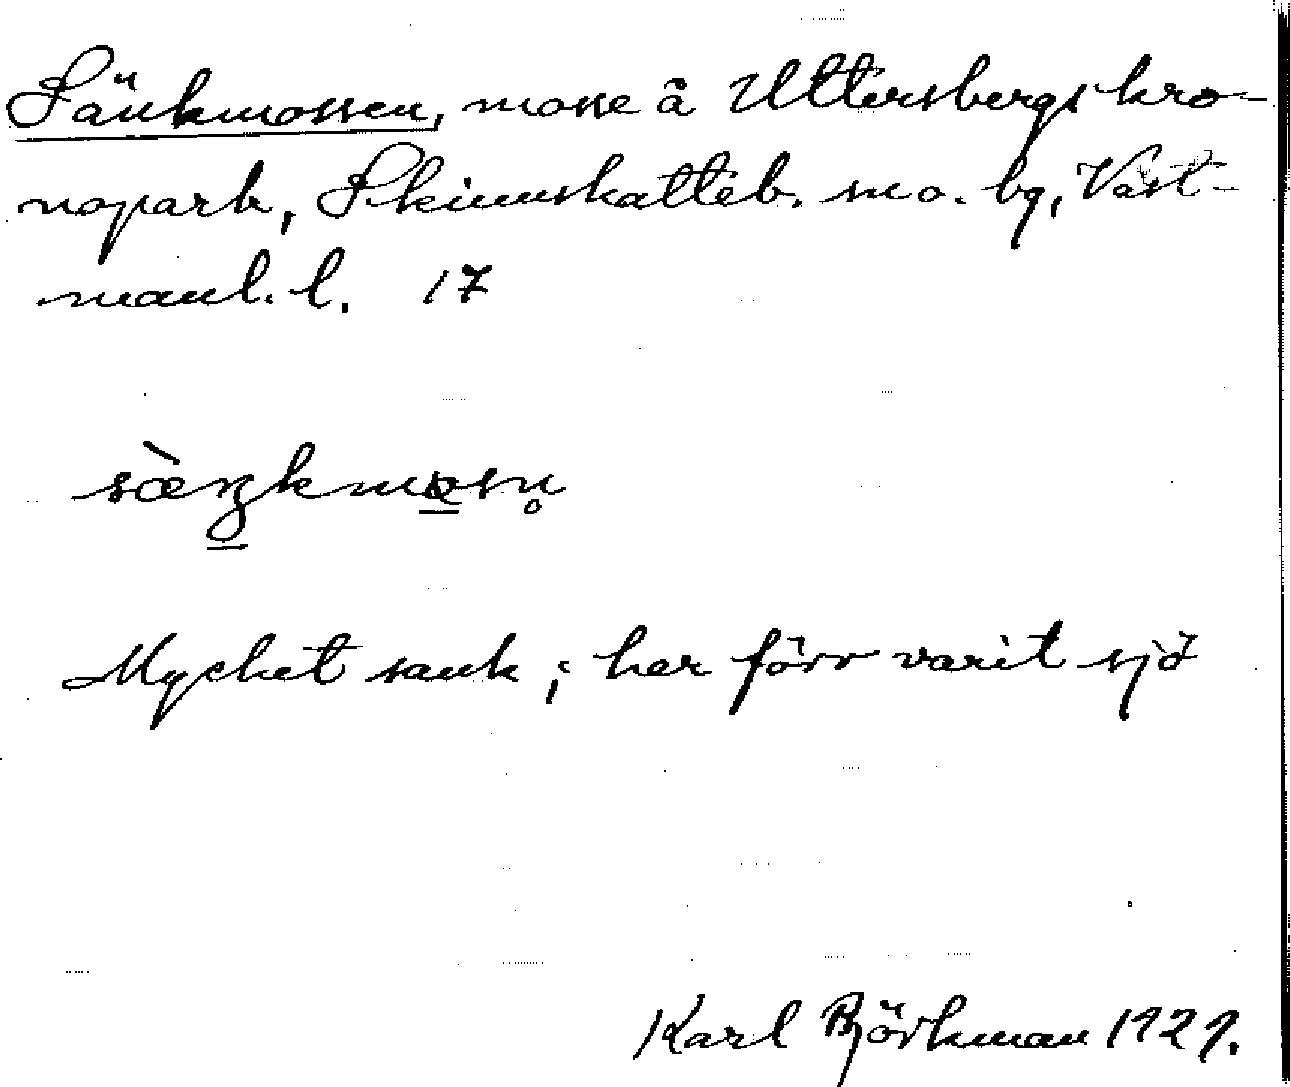 Sänkmossen, mosse å Uttersbergs kro-
nopark, Skinnskatteb. sn o. bg, Väst-
manl. l. 17
Mycket sank; har förr varit sjö
Karl Björkman 1929.